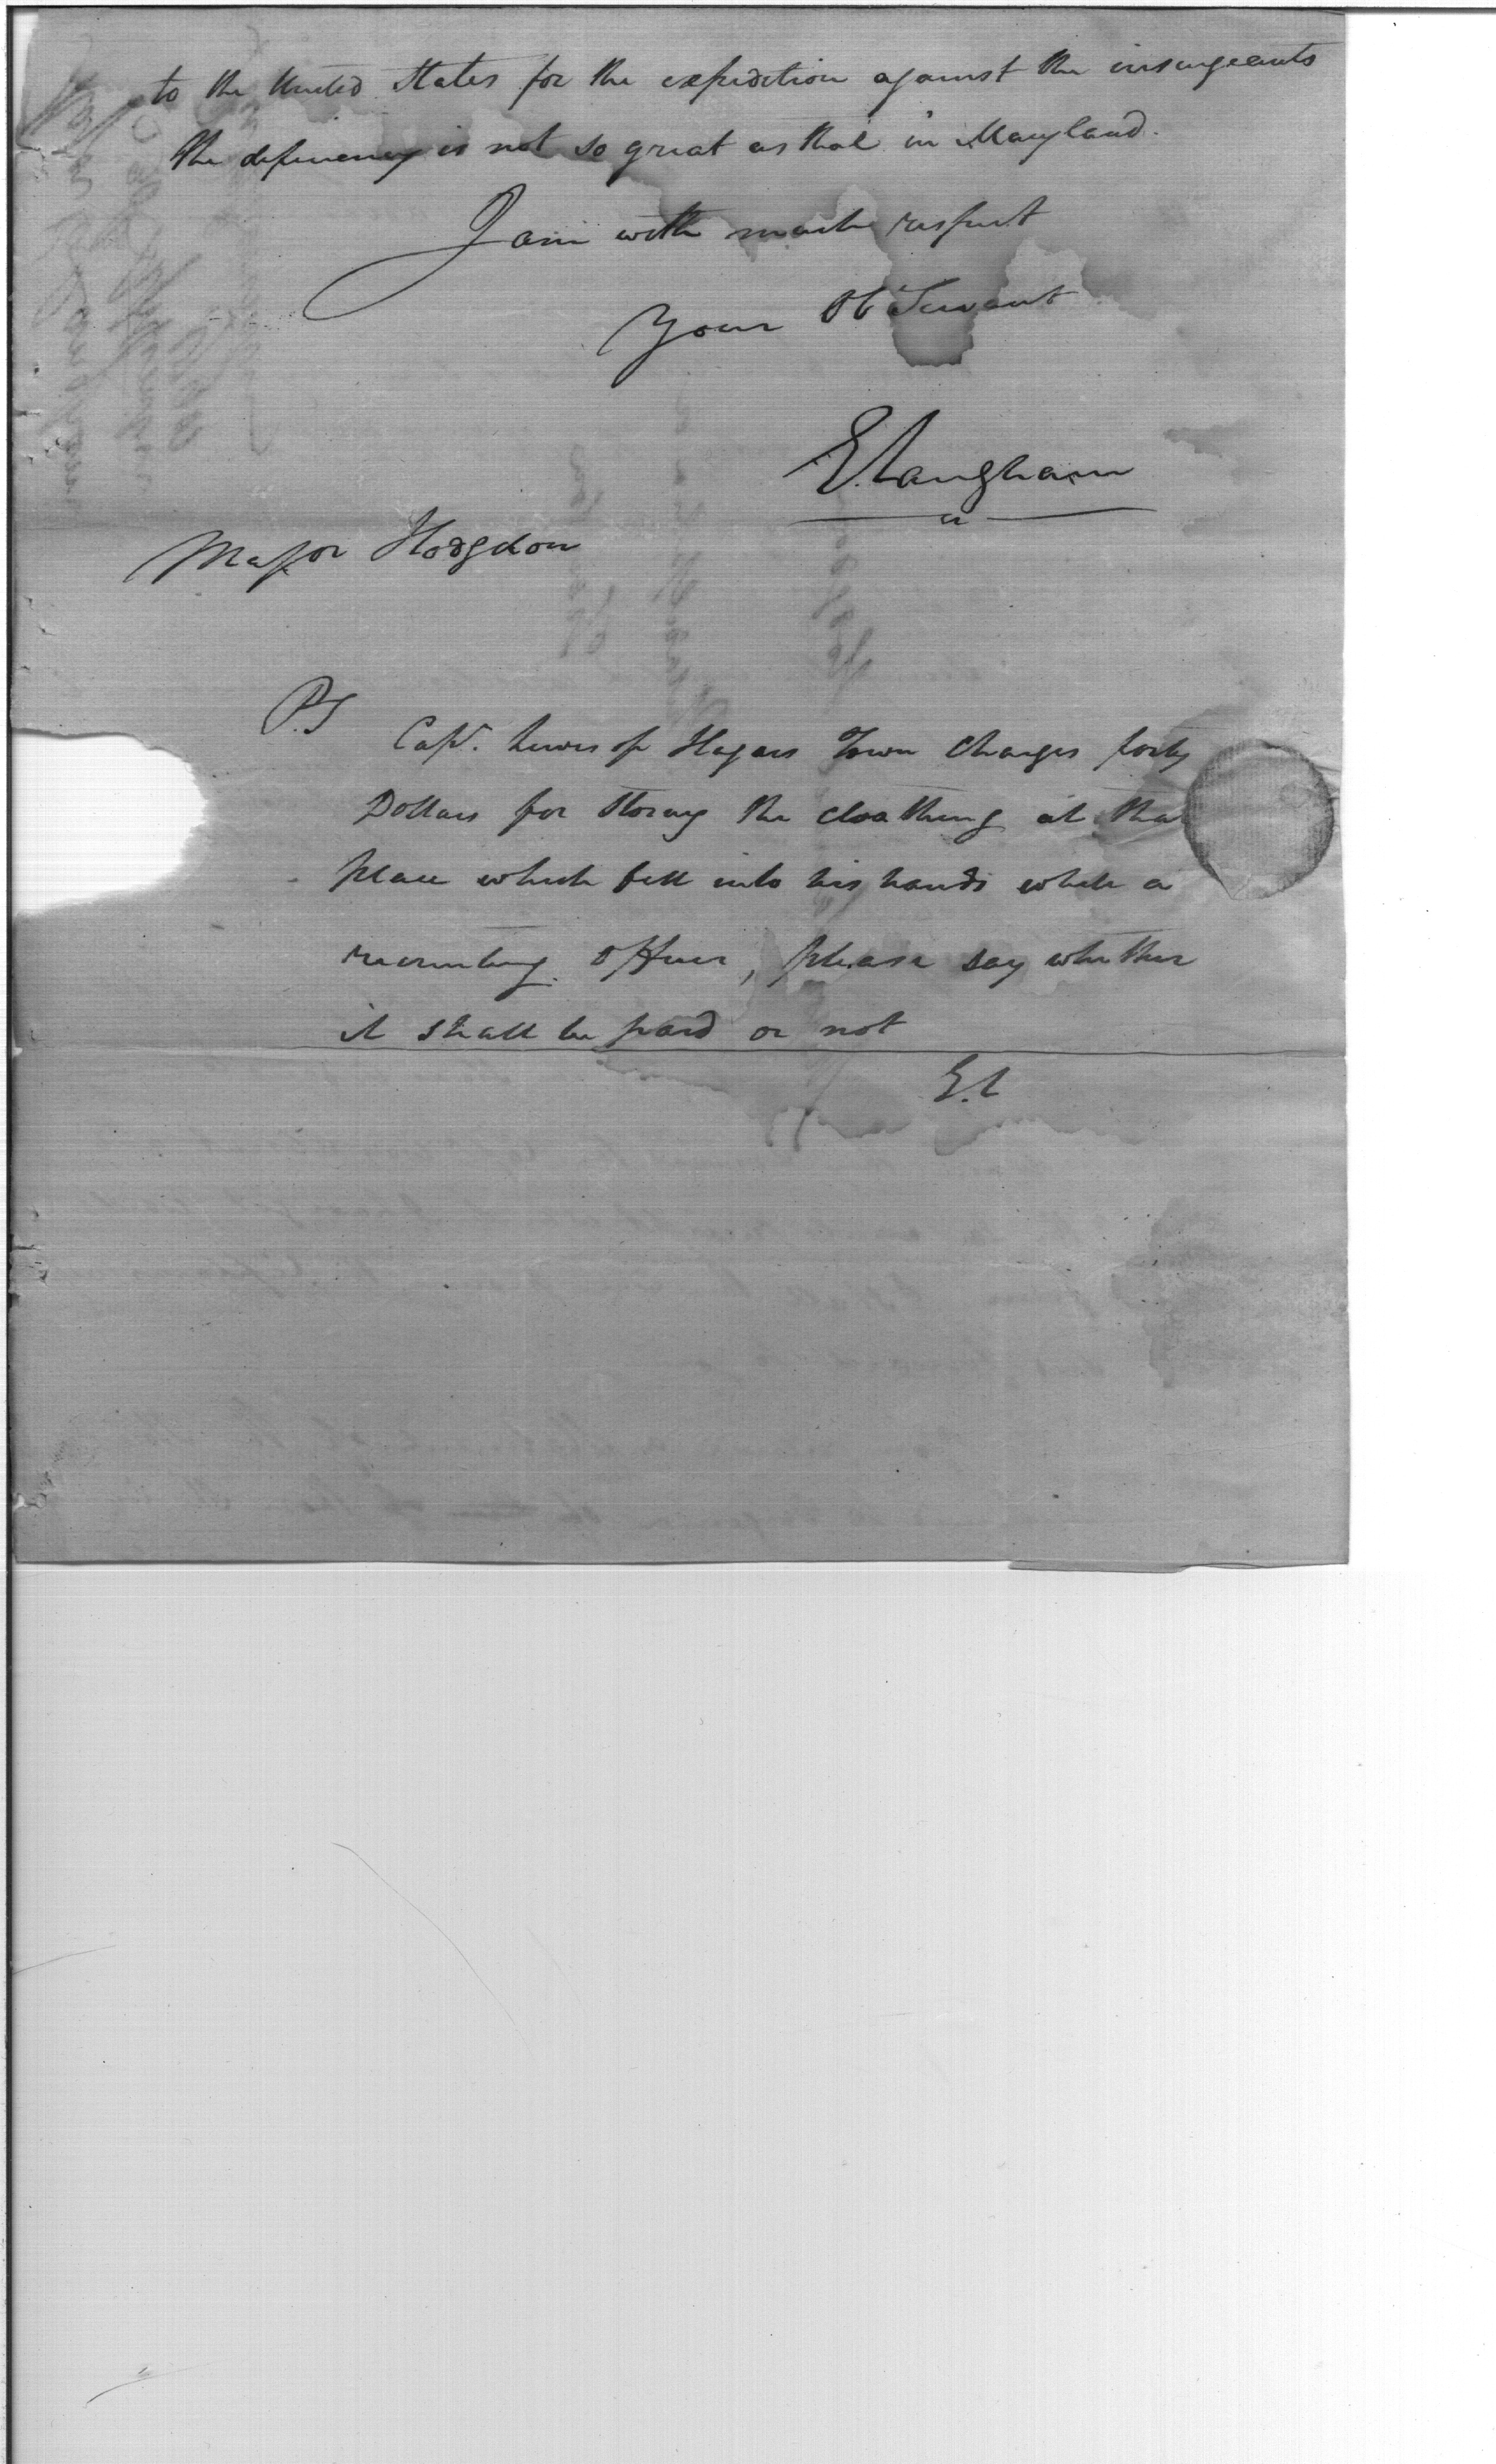 to the United States for the expedition against the insurgeants
the deficiency is not so great as that in Maryland.
I am with much respect
Your Ob Servant
E. Langham
Major Hodgdon
P.S
Capt. Lewis of Hagars Town charges forty
Dollars for storing the cloathing at that
place which fell into his hands while a
recruiting officer, please say whether
it shall be paid or not
E.L